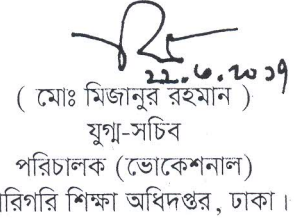 ২২.৬.২০১৭
( মোঃ মিজানুর রহমান )
যুগ্ম-সচিব
পরিচালক (ভোকেশনাল)
রিগরি শিক্ষা অধিদপ্তর, ঢাকা।